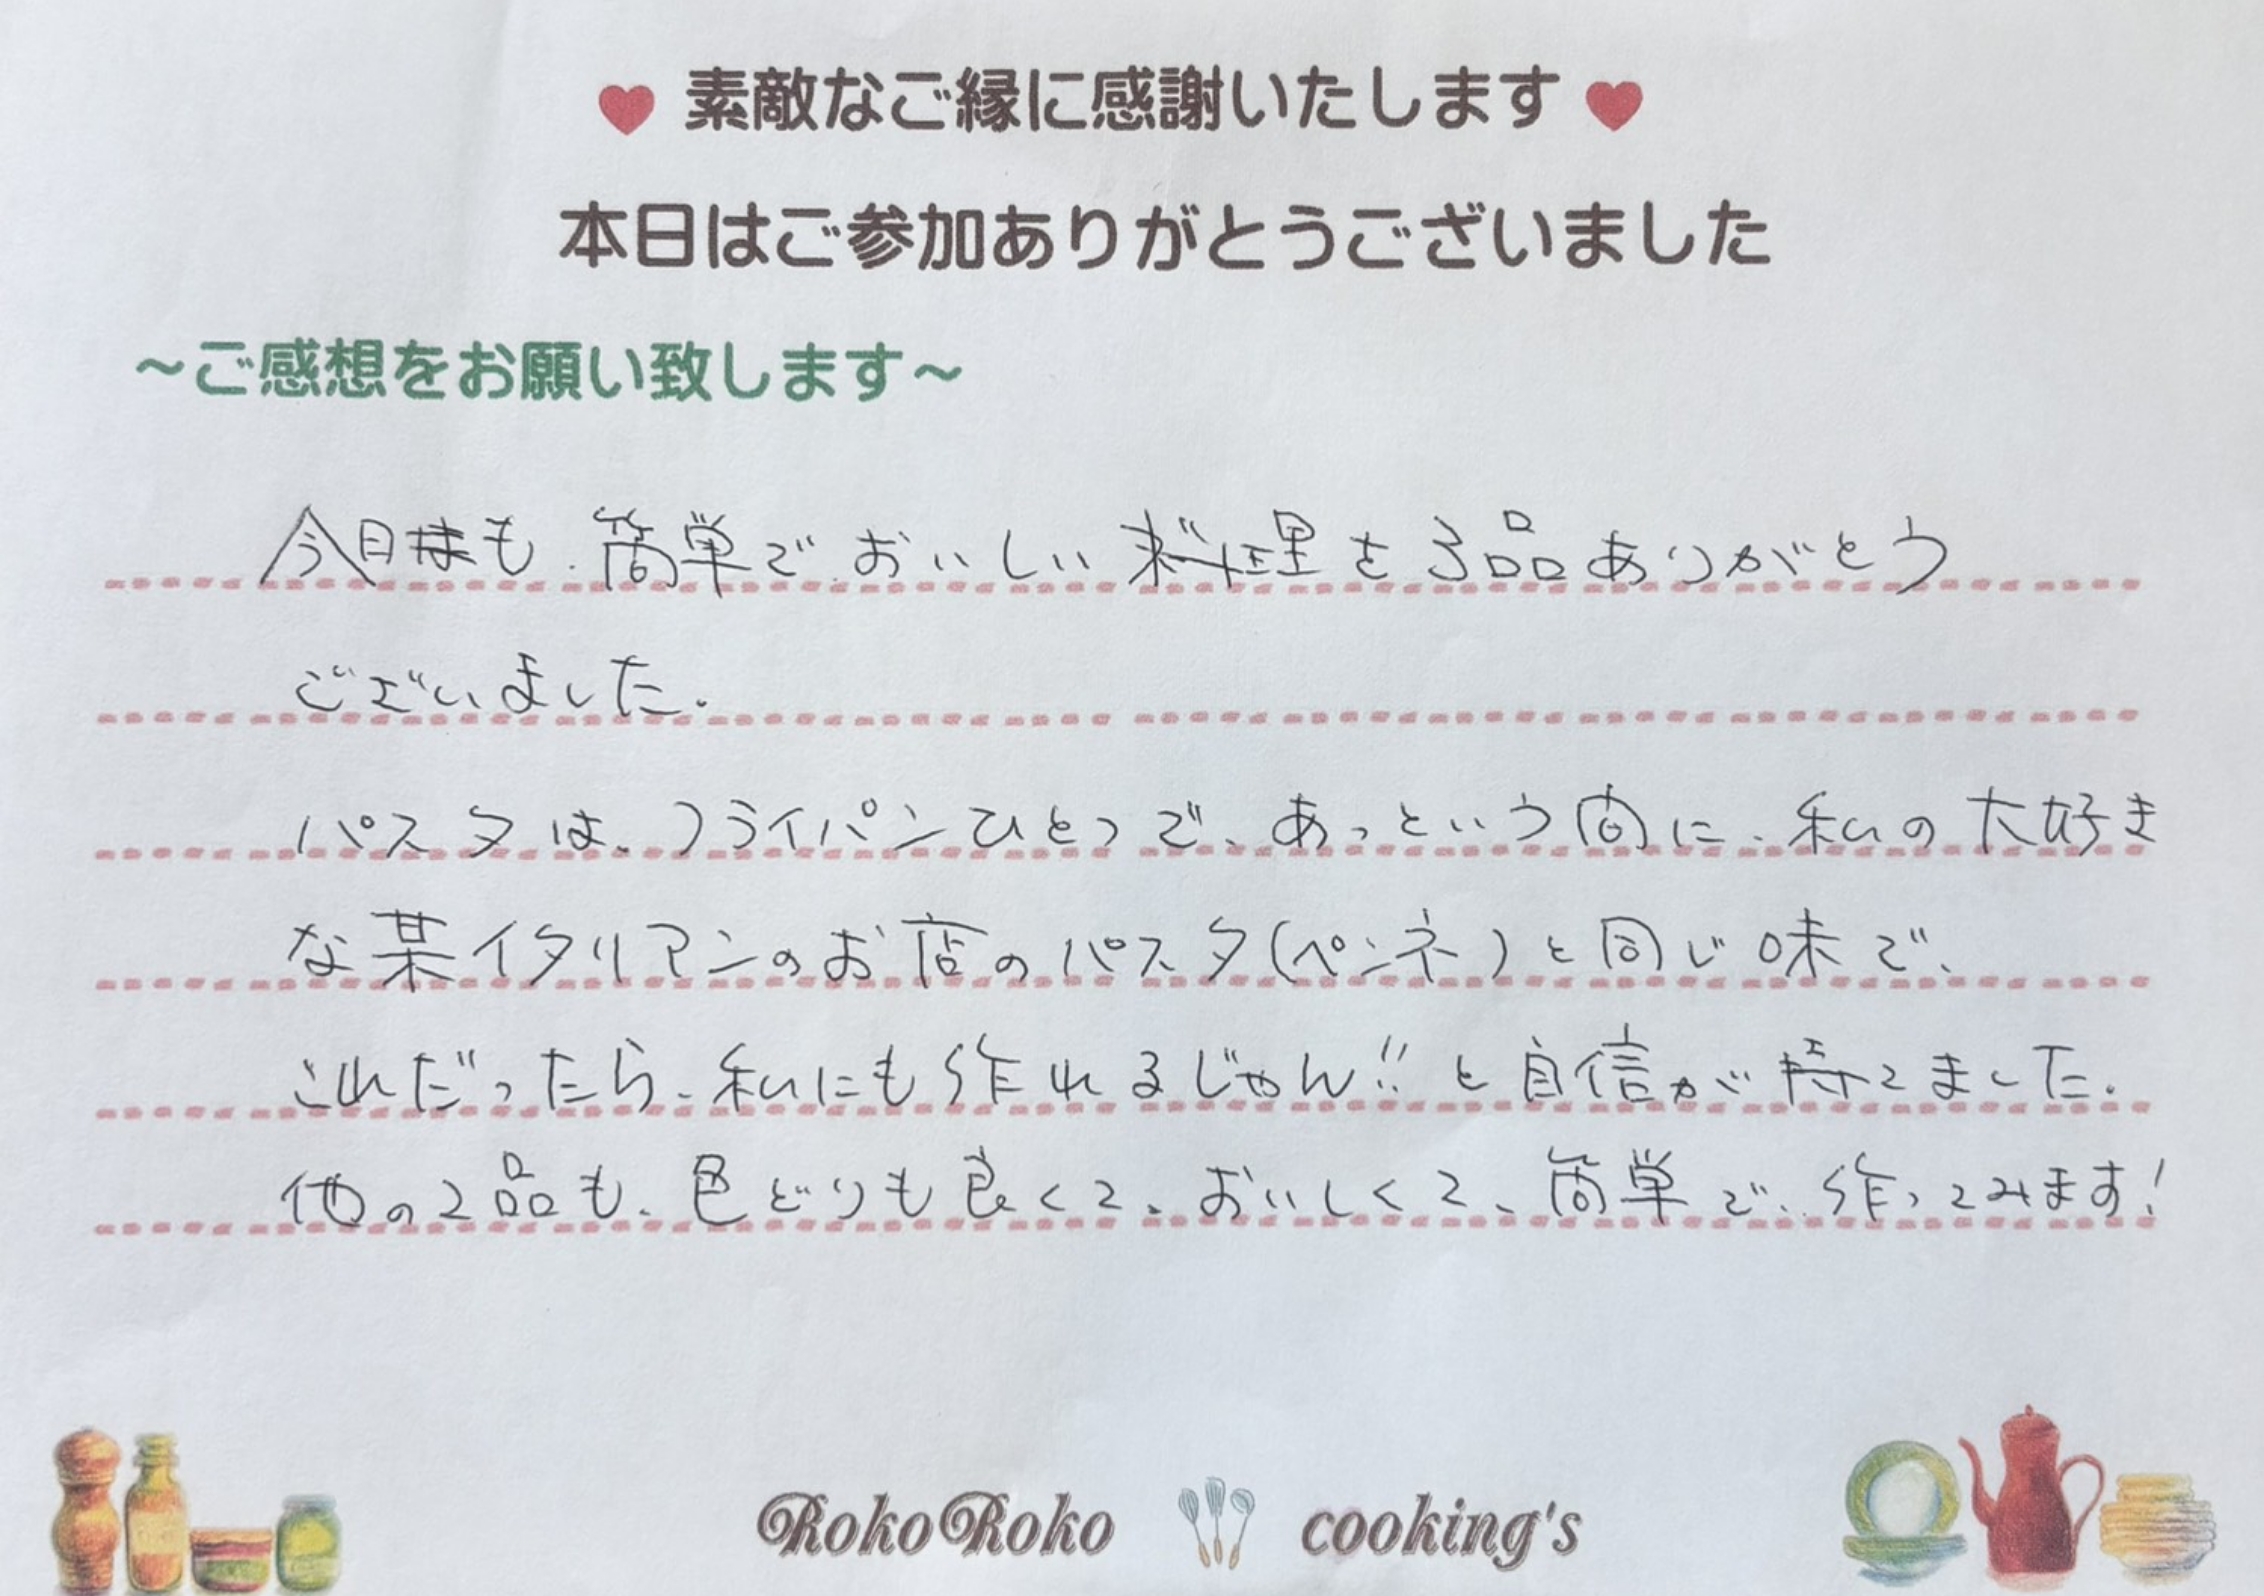 素敵なご縁に感謝いたします
本日はご参加ありがとうございました
~ご感想をお願い致します~
今日も、簡単でおいしい料理を3品ありがとう
ございました。
パスタは、フライパンひとつで、あっという間に、私の大好き
な某イタリアンのお店のパスタ(ペンネ)と同じ味で、
これだったら、私にも作れるじゃん!!と自信が持てました。
他の2品も、色どりも良くて、おいしくて、簡単で、作ってみます!
RokoRoko cooking's